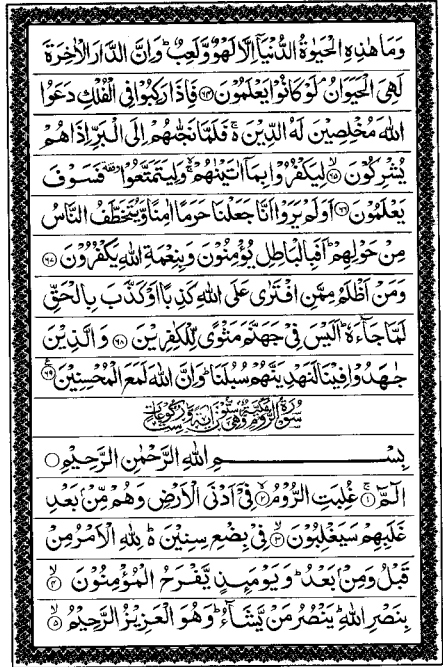 وَمَا هٰذِهِ الْحَيٰوةُ الدُّنْيَآ اِلَّا لَهْوٌ وَّلَعِبٌ ؕ وَاِنَّ الدَّارَ الْاٰخِرَةَ
لَهِیَ الْحَيَوَانُ ۘ لَوْ كَانُوْا يَعْلَمُوْنَ ﴿۶۴﴾ فَاِذَا رَكِبُوْا فِی الْفُلْكِ دَعَوُا
اللّٰهَ مُخْلِصِيْنَ لَهُ الدِّيْنَ ۚ فَلَمَّا نَجّٰىهُمْ اِلَى الْبَرِّ اِذَا هُمْ
يُشْرِكُوْنَ ﴿۶۵﴾ لِيَكْفُرُوْا بِمَآ اٰتَيْنٰهُمْ ۚ وَلِيَتَمَتَّعُوْا ۥ فَسَوْفَ
يَعْلَمُوْنَ ﴿۶۶﴾ اَوَلَمْ يَرَوْا اَنَّا جَعَلْنَا حَرَمًا اٰمِنًا وَّيُتَخَطَّفُ النَّاسُ
مِنْ حَوْلِهِمْ ؕ اَفَبِالْبَاطِلِ يُؤْمِنُوْنَ وَبِنِعْمَةِ اللّٰهِ يَكْفُرُوْنَ ﴿۶۷﴾
وَمَنْ اَظْلَمُ مِمَّنِ افْتَرٰى عَلَى اللّٰهِ كَذِبًا اَوْ كَذَّبَ بِالْحَقِّ
لَمَّا جَآءَهٗ ؕ اَلَيْسَ فِیْ جَهَنَّمَ مَثْوًى لِّلْكٰفِرِيْنَ ﴿۶۸﴾ وَالَّذِيْنَ
جٰهَدُوْا فِيْنَا لَنَهْدِيَنَّهُمْ سُبُلَنَا ؕ وَاِنَّ اللّٰهَ لَمَعَ الْمُحْسِنِيْنَ ﴿۶۹﴾
سُوْرَةُ الرُّوْمِ مَكِّيَّةٌ وَّهِیَ سِتُّوْنَ اٰيَةً
بِسْمِ اللّٰهِ الرَّحْمٰنِ الرَّحِيْمِ ۝
الٓمّٓ ﴿۱﴾ غُلِبَتِ الرُّوْمُ ﴿۲﴾ فِیْٓ اَدْنَى الْاَرْضِ وَهُمْ مِّنْۢ بَعْدِ
غَلَبِهِمْ سَيَغْلِبُوْنَ ﴿۳﴾ فِیْ بِضْعِ سِنِيْنَ ؕ لِلّٰهِ الْاَمْرُ مِنْ
قَبْلُ وَمِنْۢ بَعْدُ ؕ وَيَوْمَئِذٍ يَّفْرَحُ الْمُؤْمِنُوْنَ ﴿۴﴾
بِنَصْرِ اللّٰهِ ؕ يَنْصُرُ مَنْ يَّشَآءُ ؕ وَهُوَ الْعَزِيْزُ الرَّحِيْمُ ﴿۵﴾